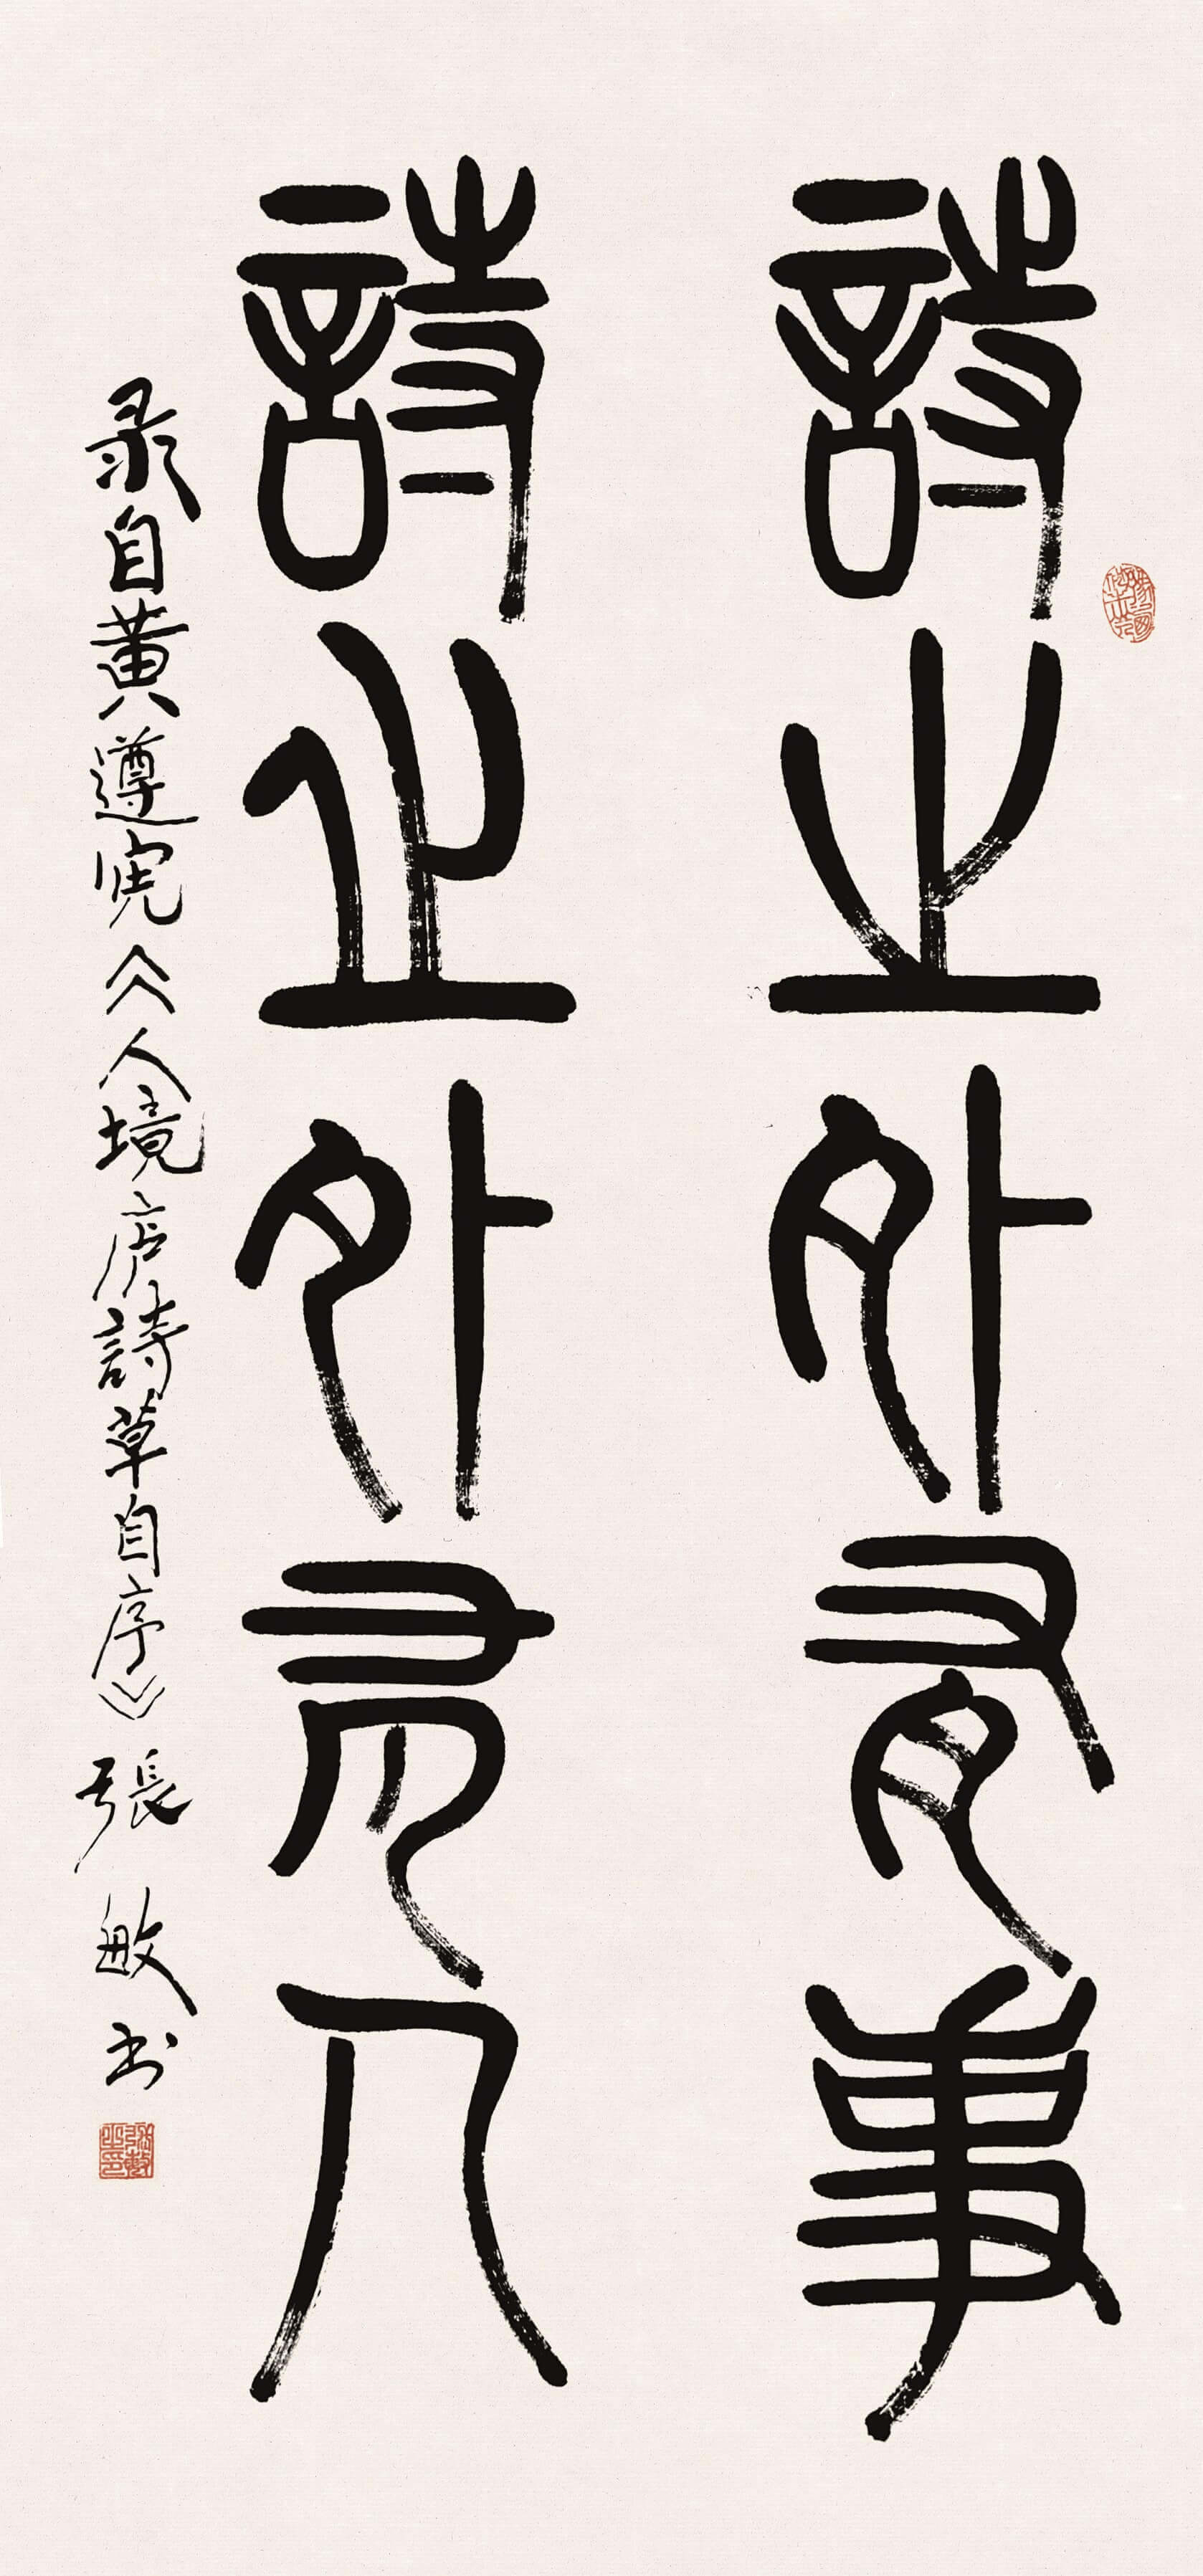 詩之外有事
詩止外有人
录自黄遵宪《人境庐詩草自序》張敏书